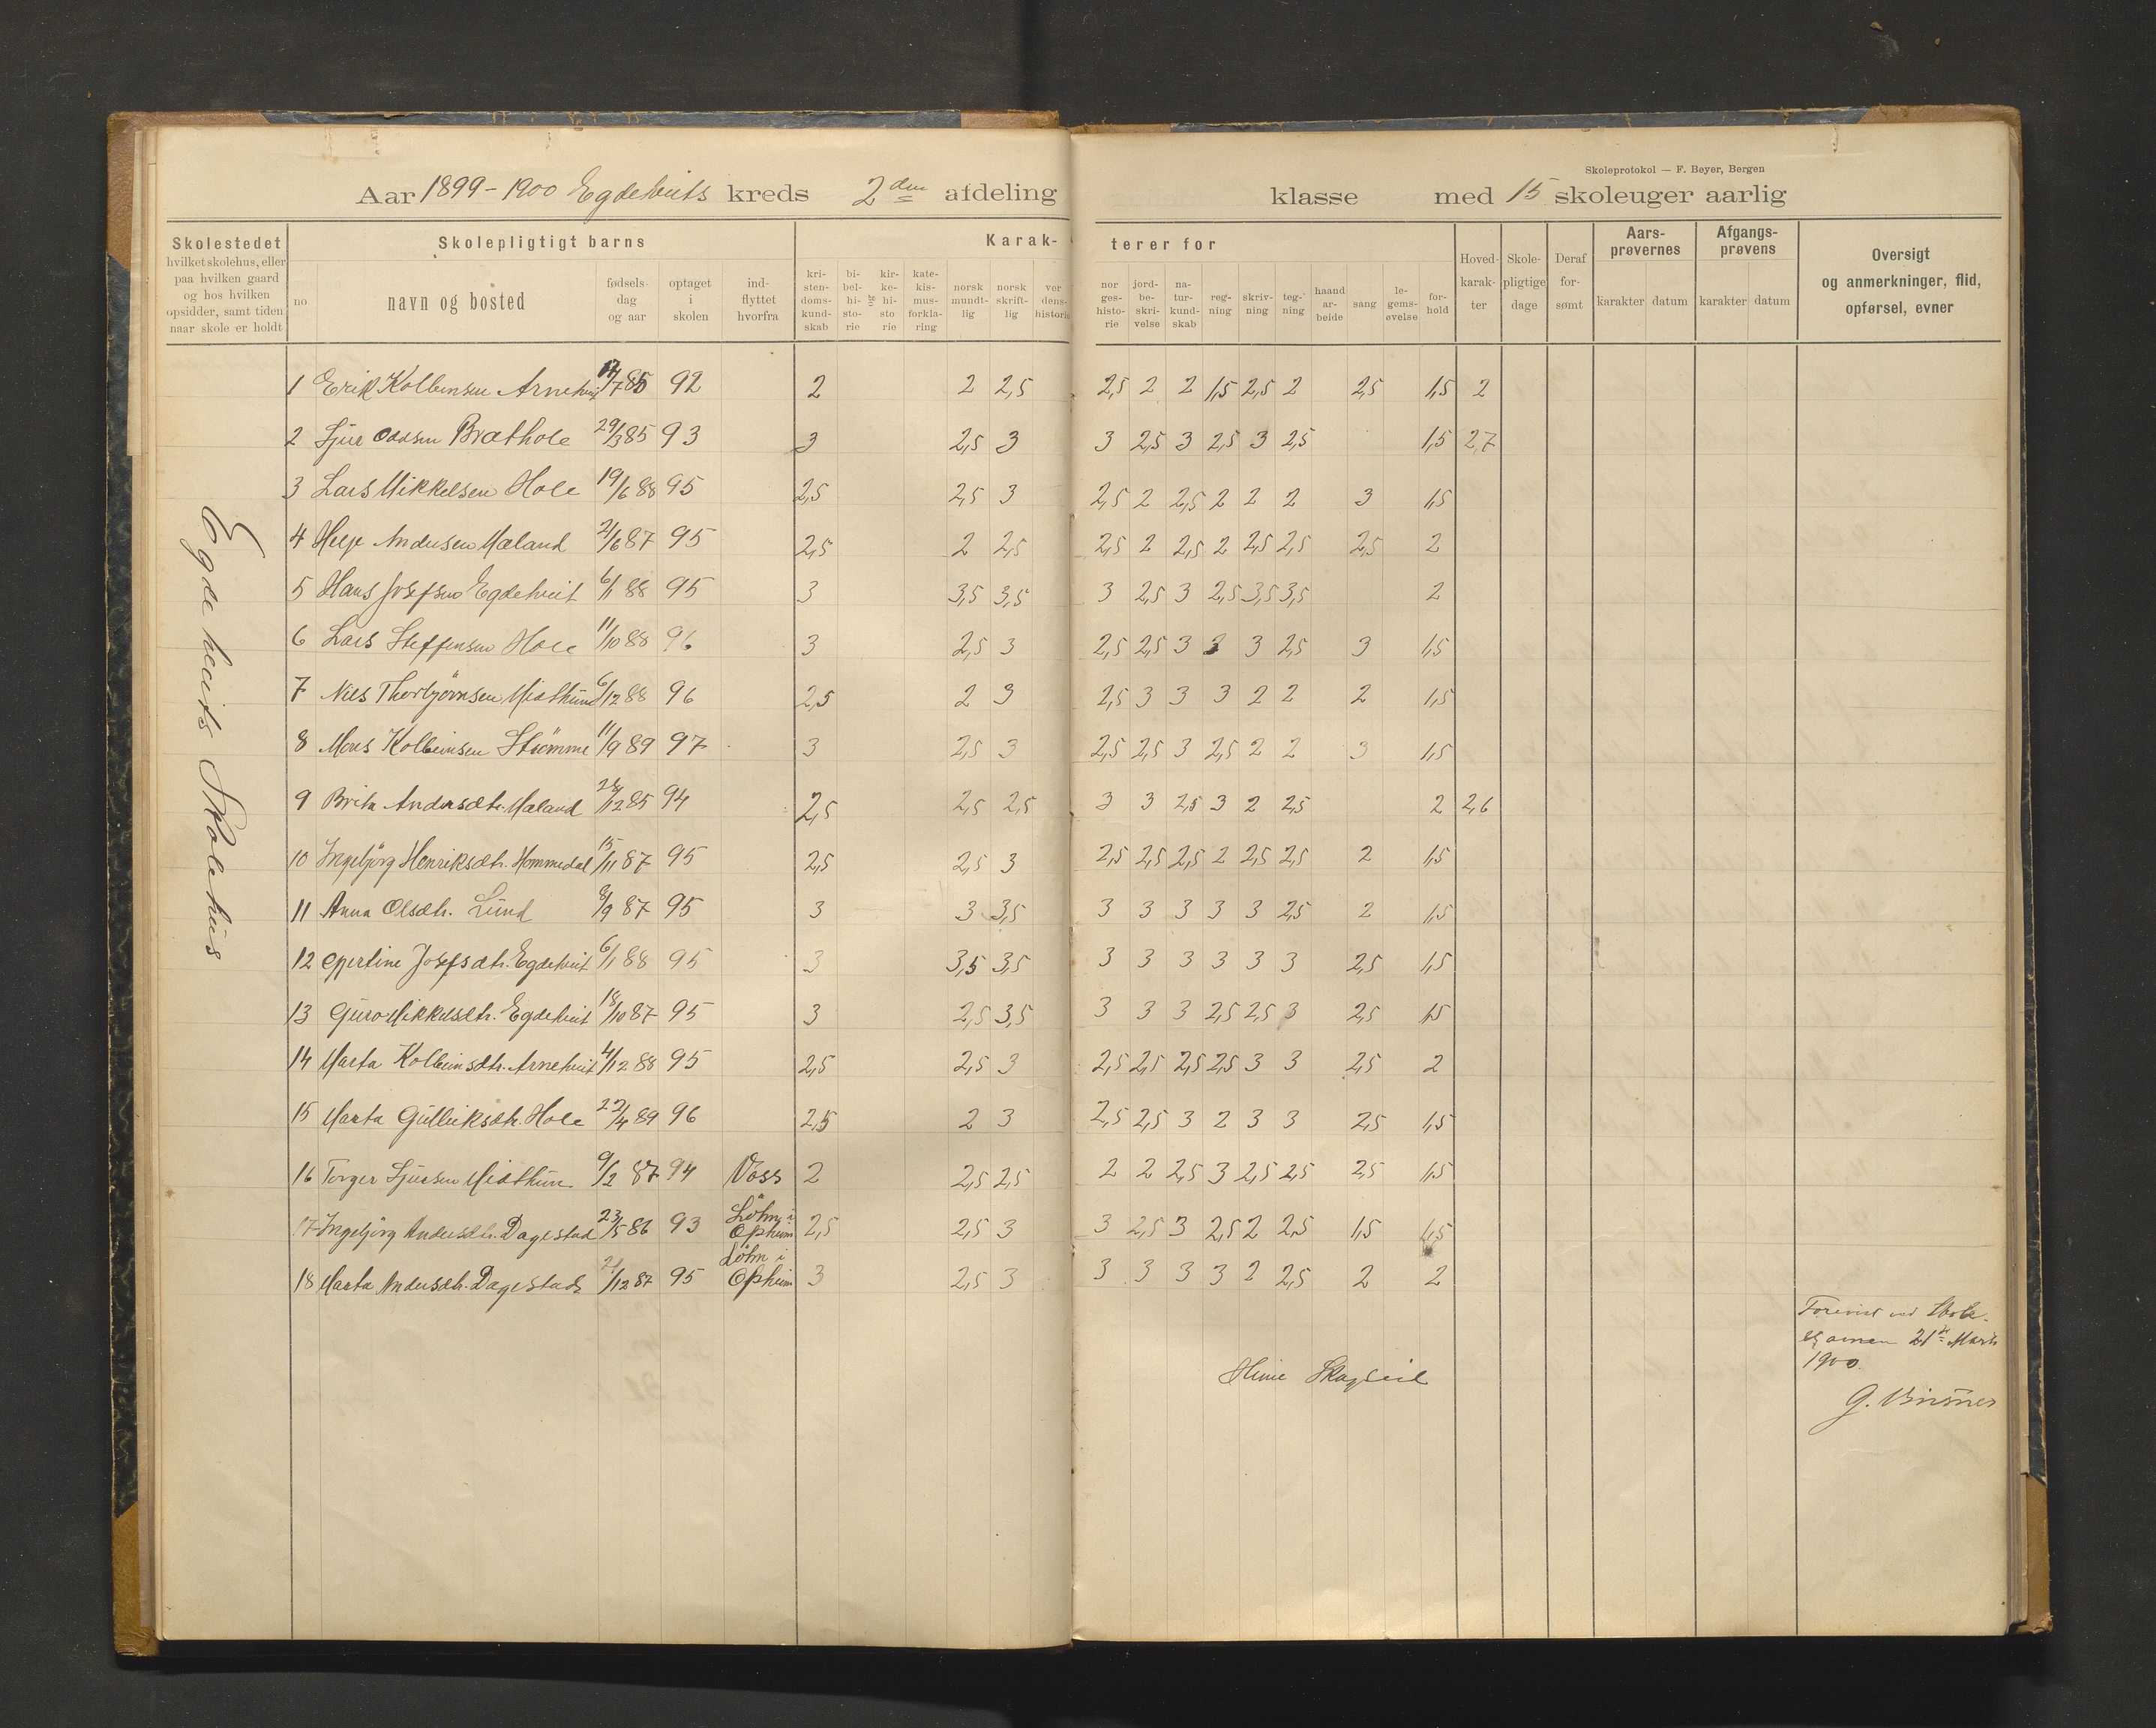 Skoleprotokol — F. Beyer, Bergen
Aar 1899-1900 Egdetveits kreds 2den afdeling klasse med 15 skoleuger aarlig
Skolestedet
hvilket skolehus, eller
paa hvilken gaard
og hos hvilken
opsidder, samt tiden
naar skole er holdt
Skolepligtigt barns
no
navn og bosted
fødsels-
dag
og aar
optaget
i
skolen
ind-
flyttet
hvorfra
Karak-
terer for
kri-
sten-
doms-
kund-
skab
bi-
bel-
hi-
sto-
rie
og
kir-
ke-
hi-
sto
rie
kate-
kis-
mus-
forkla-
ring
norsk
mundt-
lig
norsk
skrift-
lig
ver
dens-
historie
nor
ges-
histo-
rie
jord-
be-
skri-
velse
na-
tur-
kund-
skab
reg-
ning
skriv-
ning
teg-
ning
haand
ar-
beide
sang
le-
gems-
øvelse
for-
hold
Hoved-
karak-
ter
Skole-
pligtige
dage
Deraf
for-
sømt
Aars-
prøvernes
karakter datum
Afgangs-
prøvens
karakter datum
Oversigt
og anmerkninger, flid,
opførsel, evner
Egdetveits Skolehus
1 Erik Kolbeinsen Arnetveit /7 85 92 2 2 2,5 2,5 2 2 1,5 2,5 2 2,5 1,5 2
2 Sjur Oddsen Brathole 29/3 85 93 3 2,5 3 3 2,5 3 2,5 3 2,5 1,5 2,7
3 Lars Mikkelsen Hole 19/6 88 95 2,5 2,5 3 2,5 2 2,5 2 2 2 3 1,5
4 Helje Andersen Mæland 2/6 87 95 2,5 2 2,5 2,5 2 2,5 2 2,5 2,5 2,5 2
5 Hans Josefsen Egdetveit 6/1 88 95 3 3,5 3,5 3 2,5 3 2,5 3,5 3,5 2
6 Lars Steffensen Hole 11/10 88 96 3 2,5 3 2,5 2,5 3 3 3 2,5 3 1,5
7 Nils Thorbjörnsen Midthun 6/12 88 96 2,5 2 3 2,5 3 3 3 2 2 2 1,5
8 Mons Kolbeinsen Strömme 11/9 89 97 3 2,5 3 2,5 2,5 3 2,5 2 2 3 1,5
9 Brita Andersdtr. Mæland 28/12 85 94 2,5 2,5 2,5 3 3 2,5 3 2 2,5 2 2,6
10 Ingebjörg Henriksdtr. Hommedal 15/11 87 95 2,5 2,5 3 2,5 2,5 2,5 2 2,5 2,5 2 1,5
11 Anna Olsdtr. Lund 8/9 87 95 3 3 3,5 3 3 3 3 3 2,5 2 1,5
12 Josefsdtr. Egdetveit 6/1 88 95 3 3,5 3,5 3 3 3 3 3 3 2,5 1,5
13 Guro Mikkelsdtr. Egdetveit 18/10 87 95 3 2,5 3,5 3 3 3 2,5 2,5 3 2,5 1,5
14 Marta Kolbeinsdtr. Arnetveit 4/12 88 95 2,5 2,5 3 2,5 2,5 2,5 2,5 3 3 2,5 2
15 Marta Gullleiksdtr. Hole 22/4 89 96 2,5 2 3 2,5 2,5 3 2 3 3 2,5 1,5
16 Torger Sjursen Midthun 9/2 87 94 Voss 2 2,5 2,5 2 2 2,5 3 2,5 2,5 2,5 1,5
17 Ingebjörg Andersdtr. Dagestad 23/5 86 93 Löhn i Opheim 2,5 2,5 3 3 2,5 3 2,5 2 2,5 1,5 1,5
18 Marta Andersdtr. Dagestad 21/12 87 95 Löhn i Opheim 3 2,5 3 3 3 3 3 2 2,5 2 2
Forevist ved Skole-
examen 21de Marts
1900.